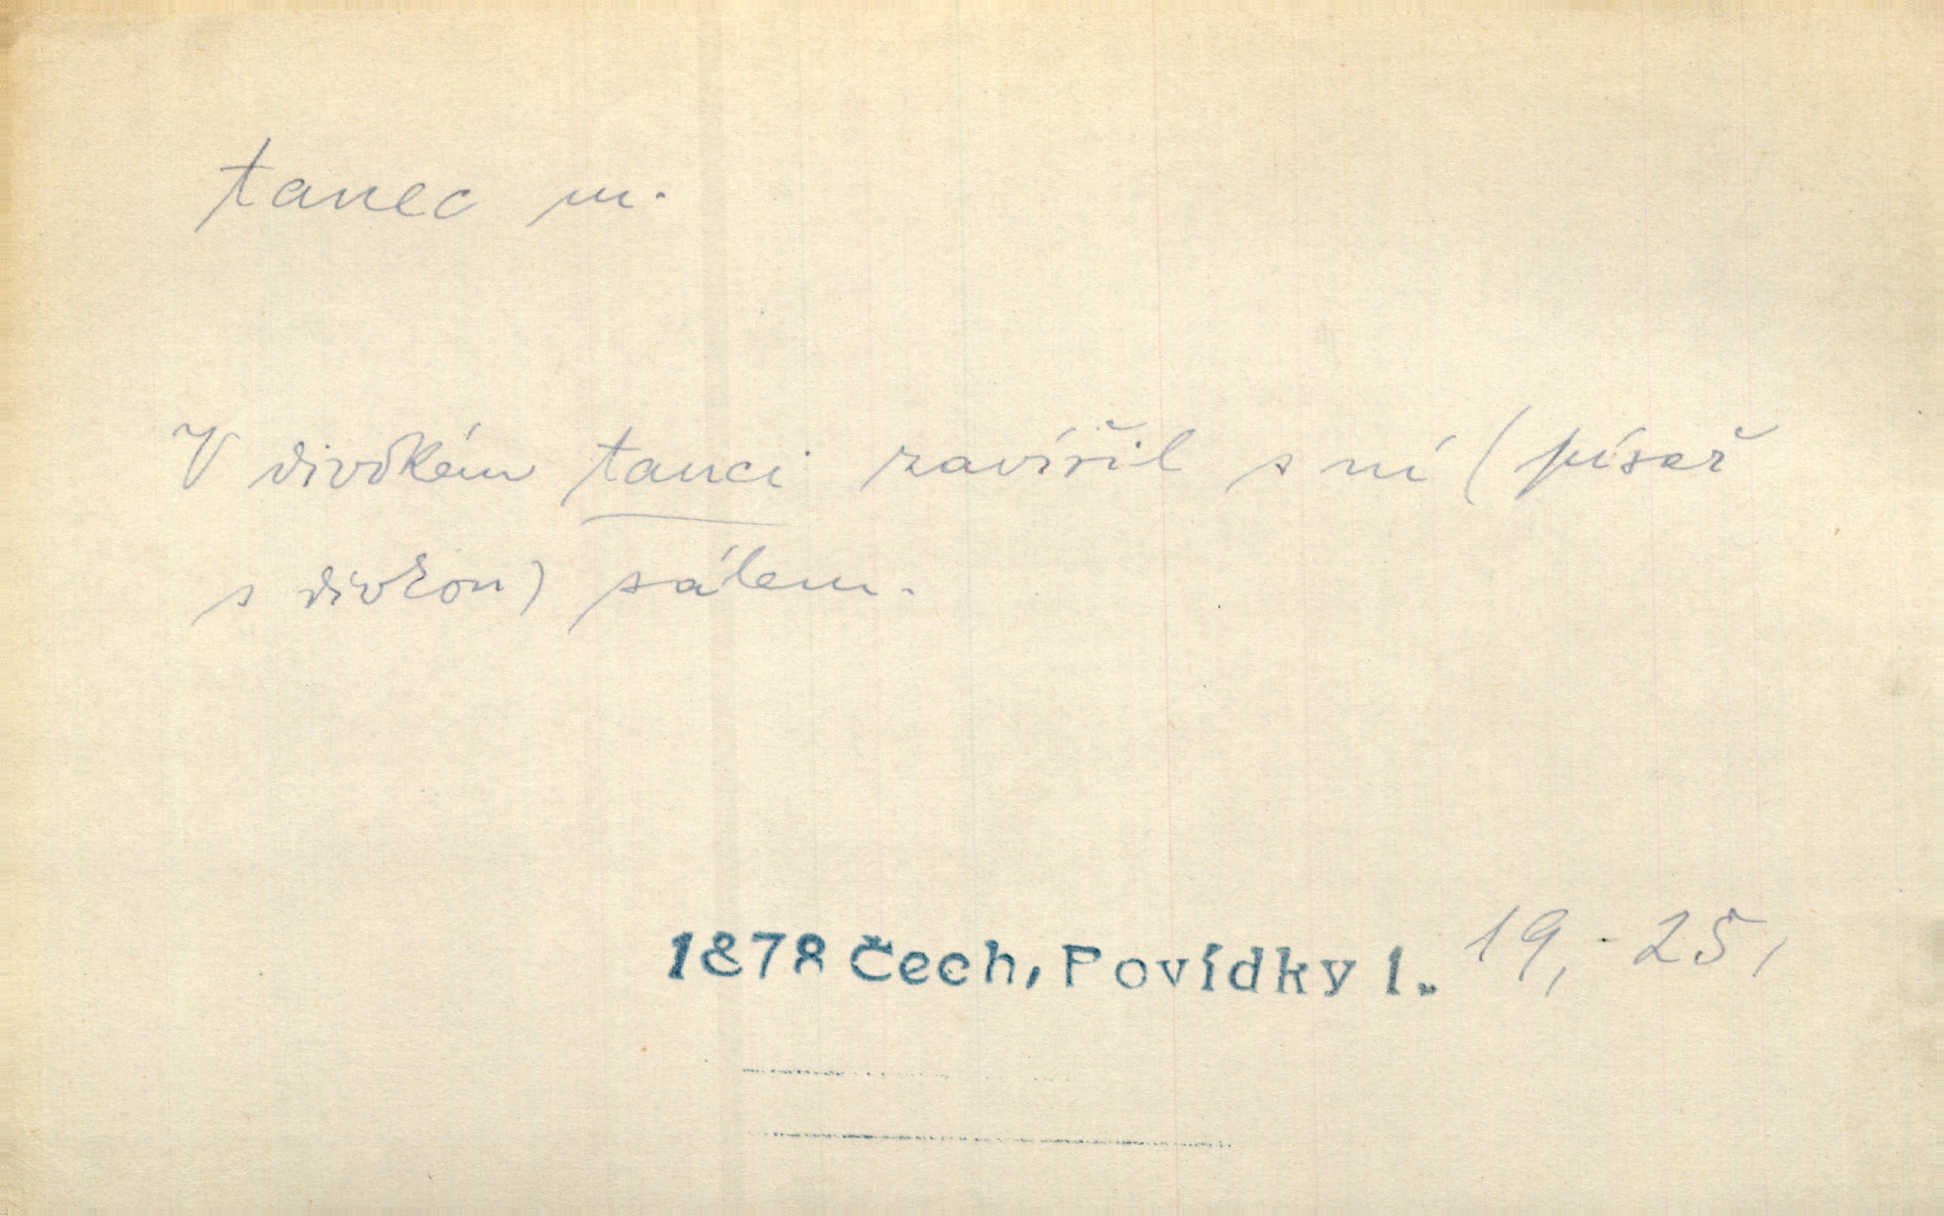 tanec m.
V divokém tanci zavířil s ní (písař
s dívkou) sálem.
1878 Čech, Povídky 1. 19,-25,